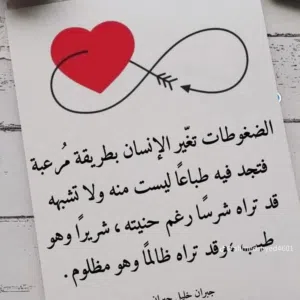 الضغوطات تغيّر الإنسان بطريقة مُرعبة
فتجد فيه طباعًا ليست منه ولا تشبهه
قد تراه شرسًا رغم حنيته، شريرًا وهو
وقد تراه ظالمًا وهو مظلوم.
جبران خليل جبران